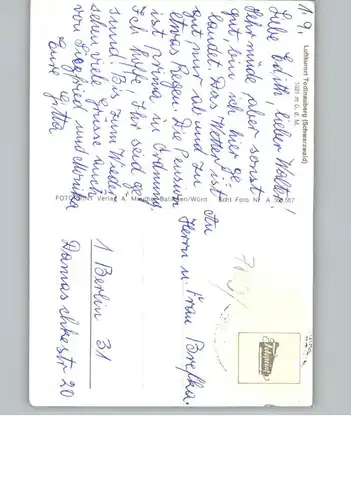 Luftkurort Todtnauberg (Schwarzwald)
1021 m ü. d. M.
1.9.
Liebe Edith, lieber Walter!
Sehr müde, aber sonst
gut bin ich hier ge-
landet. Das Wetter ist
gut nur ab und zu
etwas Regen. Die Pension
ist prima in Ordnung
Ich hoffe, Ihr seid ge-
sund! Bis zum Wieder-
sehen viele Grüsse auch
von Siegfried und Monika
Eure Gitta
Echt Foto Nr. A
FOTO Verlag A. Balingen/Württ
An
Herrn u. Frau Brefka
1 Berlin 31
Damaschkestr 20